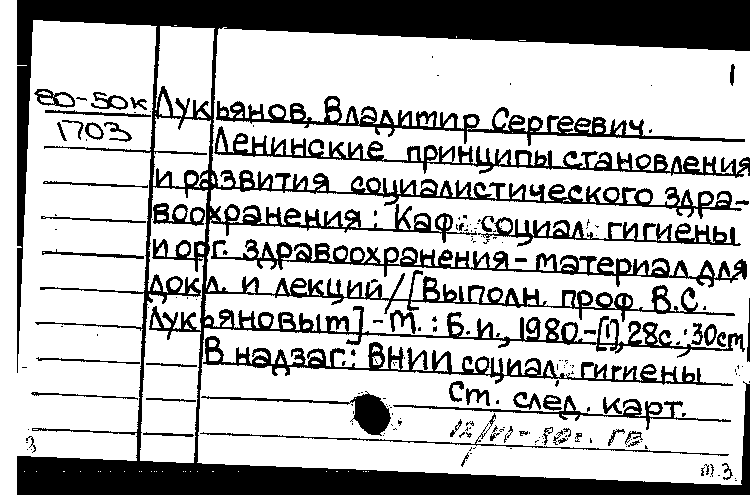 1
80-50к Лукьянов, Владимир Сергеевич.
1703 Ленинские принципы становления
и развития социалистического здра-
воохранения: Каф. социал. гигиены
и орг. здравоохранения - материал для
докл. и лекций / [Выполн. проф. В.С.
Лукьяновым]. - М.: Б.и., 1980. - [1], 28с.; 30см
В надзаг.: ВНИИ социал. гигиены
Ст. след. карт.
12/VI-80г. гв.
т.3.